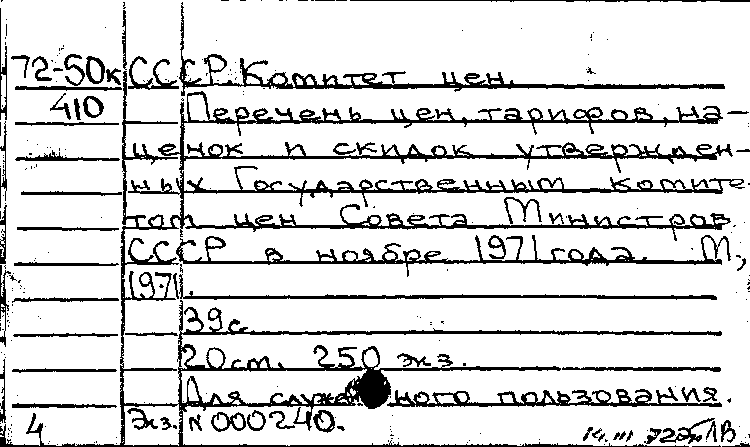 72-50к СССР. Комитет цен.
410 Перечень цен, тарифов, на-
ценок и скидок утвержден-
ных Государственным комите-
том цен Совета Министров
СССР в ноябре 1971 года. М.,
1971.
39с.
20см. 250 экз.
Для служебного пользования.
4 Экз. N 000240.
14.III 72г.